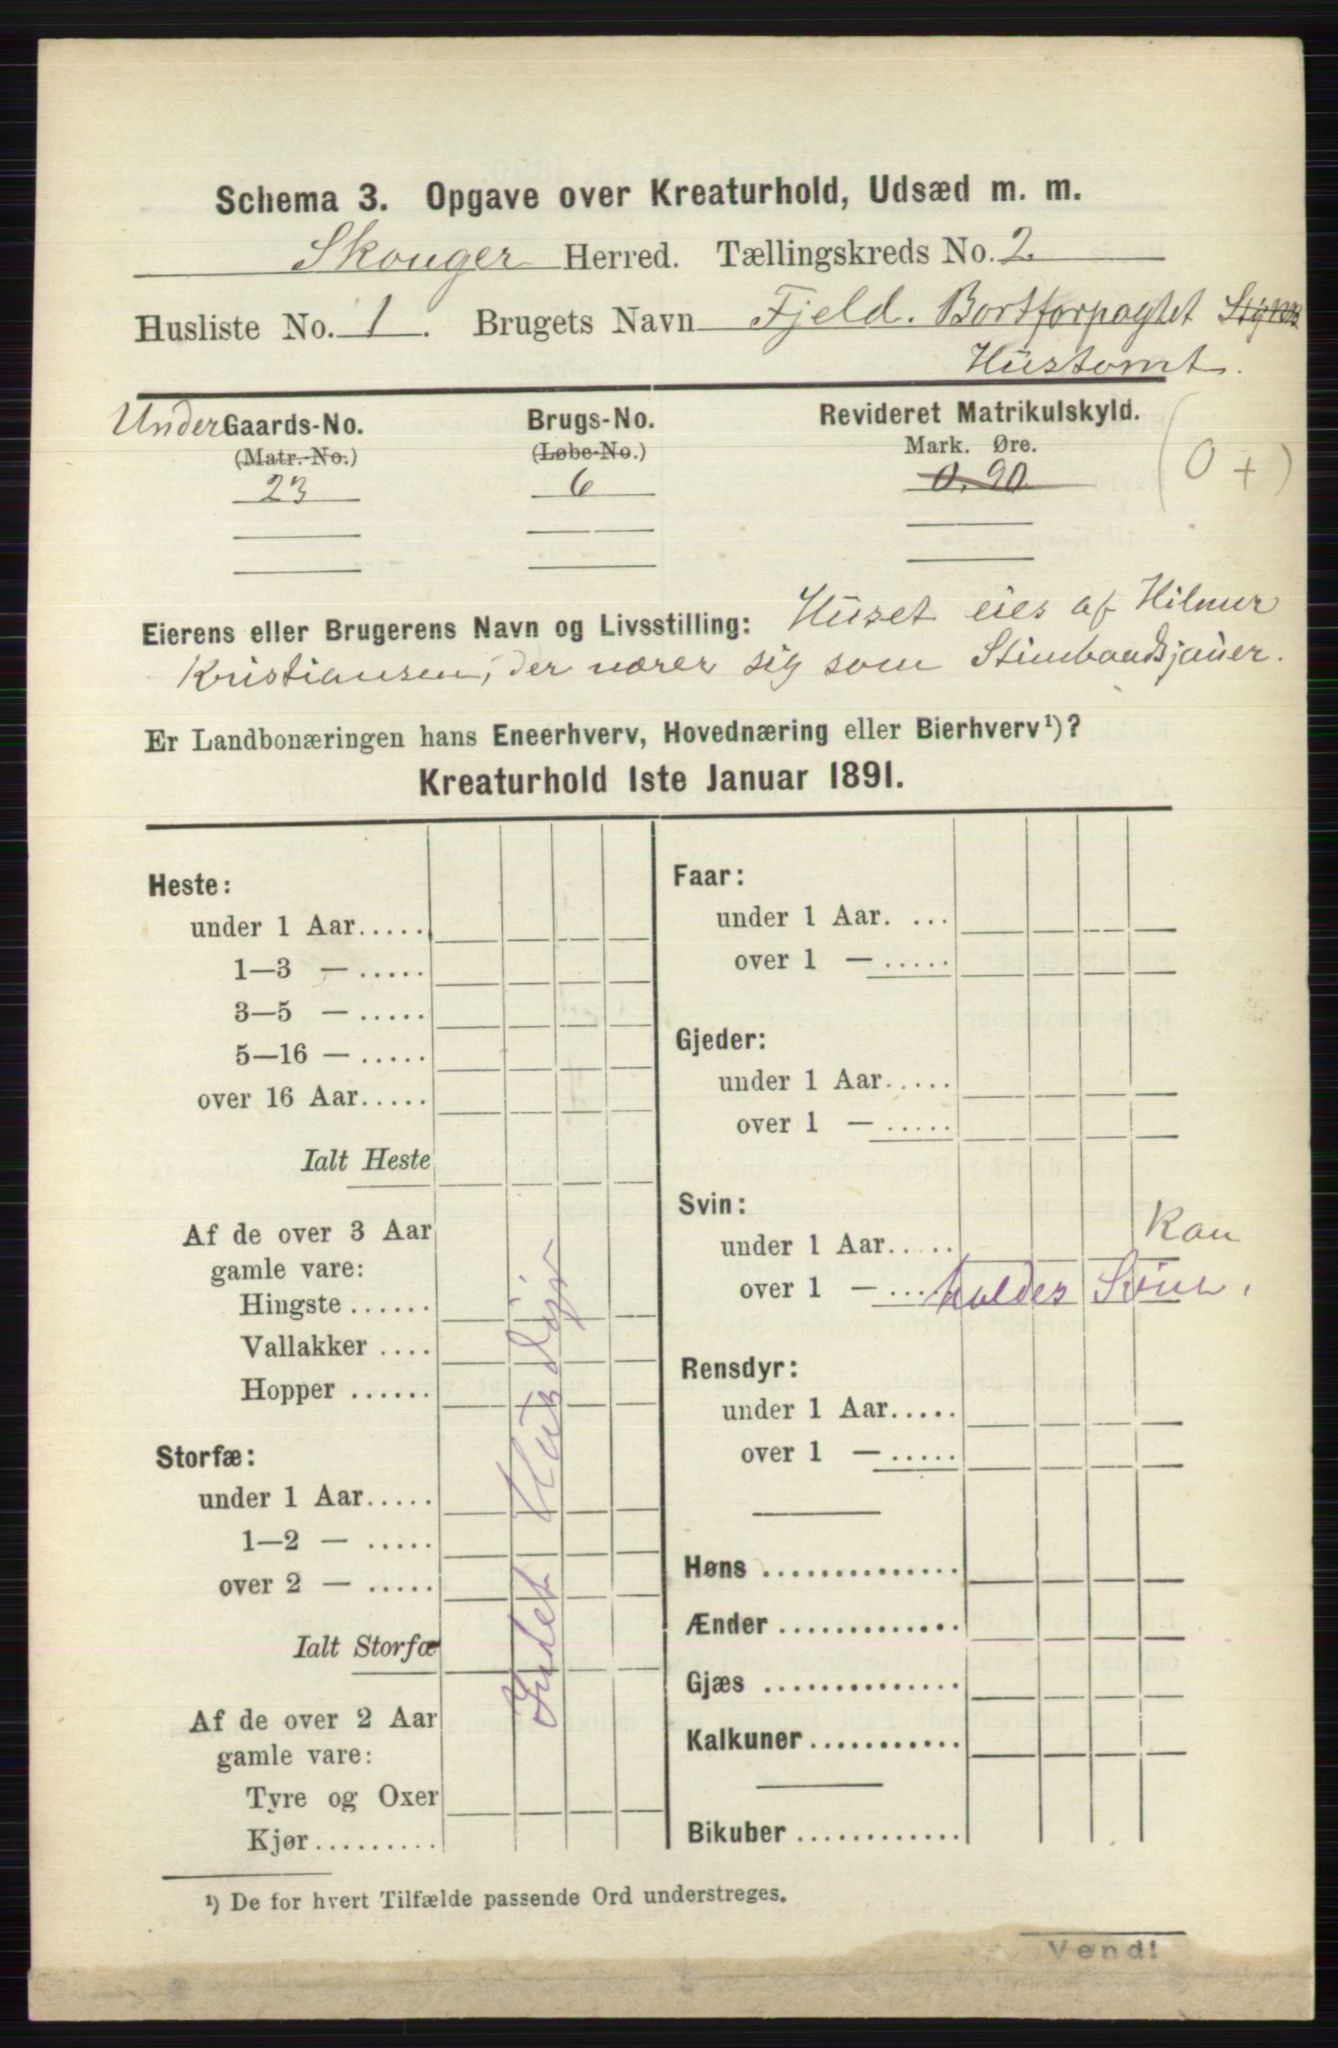 Schema 3. Opgave over Kreaturhold, Udsæd m. m.
Skouger Herred. Tællingskreds No. 2.
Husliste No. 1. Brugets Navn Fjeld. Bortforpagtet
Hustomt.
Under Gaards-No. Brugs-No. Revideret Matrikulskyld.
(Matr.-No.) (Løbe-No.) Mark. Øre.
23 6 0,90 (0 +)
Eierens eller Brugerens Navn og Livsstilling: Huset eies af Hilmer
Kristiansen, der nærer sig som
Er Landbonæringen hans Eneerhverv, Hovednæring eller Bierhverv¹)?
Kreaturhold 1ste Januar 1891.
Heste:
under 1 Aar.....
1—3 — .....
3—5 — .....
5—16 — .....
over 16 Aar.....
Ialt Heste
Af de over 3 Aar
gamle vare:
Hingste......
Vallakker ....
Hopper ......
Storfæ:
under 1 Aar.....
1—2 — .....
over 2 — .....
Ialt Storfæ
Af de over 2 Aar
gamle vare:
Tyre og Oxer
Kjør.........
Intet Husdyr
Faar:
under 1 Aar. ...
over 1 — .....
Gjeder:
under 1 Aar.....
over 1 — .....
Svin:
Kan
under 1 Aar.....
over 1 — ... holdes Sviin.
Rensdyr:
under 1 Aar.....
over 1 — .....
Høns ..............
Ænder .............
Gjæs ..............
Kalkuner...........
Bikuber ............
¹) De for hvert Tilfælde passende Ord understreges.
Vend!